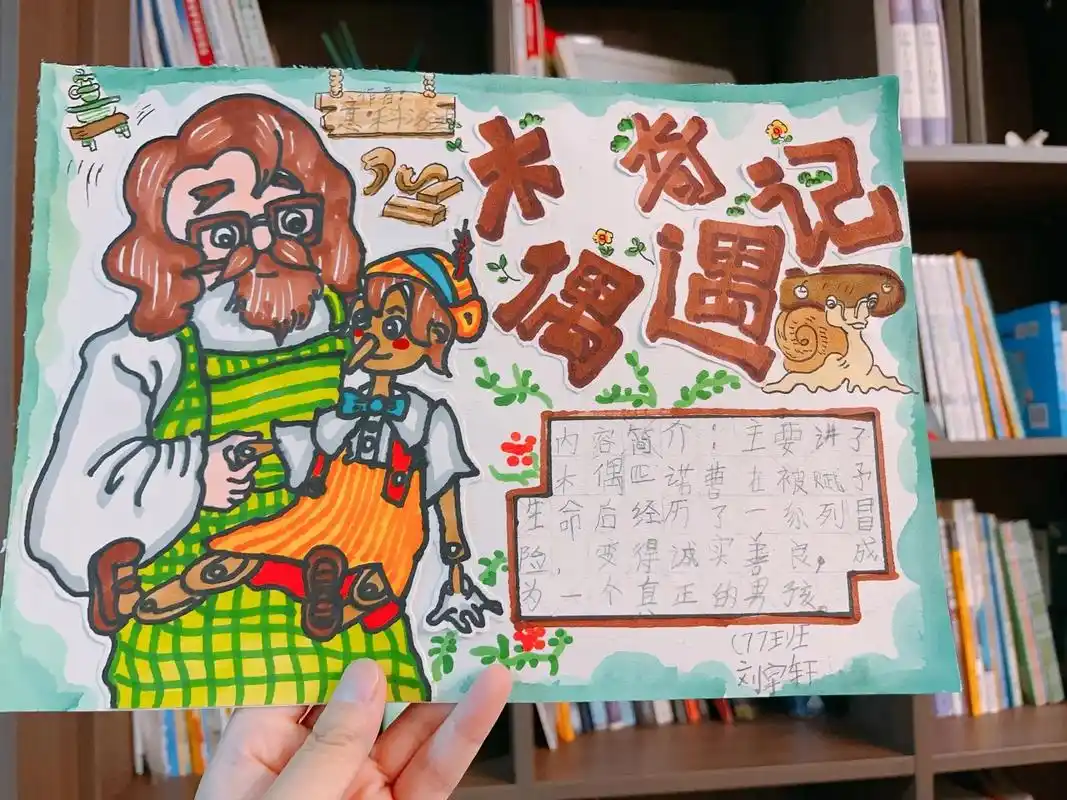 木偶奇遇记
内容简介：主要讲了
木偶匹诺曹在被赋予
生命后经历了一系列冒
险，变得诚实善良，成
为一个真正的男孩。
(77班
刘宇轩